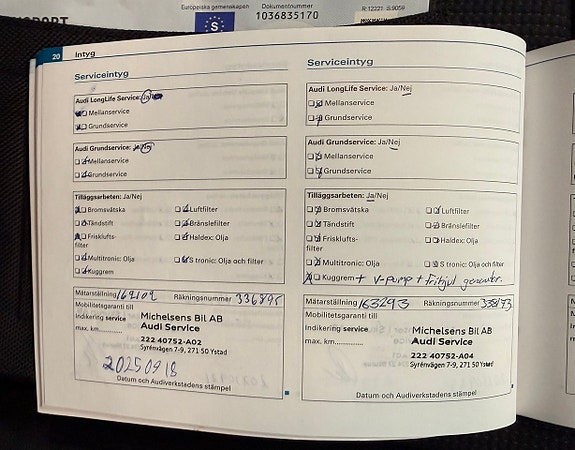 Europeiska gemenskapen
Dokumentnummer
1036835170
S:12221 S:9059
20
Intyg
Serviceintyg
Audi LongLife Service: Ja/
Mellanservice
Grundservice
Audi Grundservice: Ja/Nej
Mellanservice
Grundservice
Tilläggsarbeten: Ja/Nej
Bromsvätska
Luftfilter
Tändstift
Bränslefilter
Friskluftsfilter
Haldex: Olja
Multitronic: Olja
S tronic: Olja och filter
Kuggrem
Mätarställning 162102
Räkningsnummer 336895
Mobilitetsgaranti till
Indikering service
max. km
Michelsens Bil AB
Audi Service
222 40752-A02
Syrénvägen 7-9, 271 50 Ystad
20250918
Datum och Audiverkstadens stämpel
Serviceintyg
Audi LongLife Service: Ja/Nej
Mellanservice
Grundservice
Audi Grundservice: Ja/Nej
Mellanservice
Grundservice
Tilläggsarbeten: Ja/Nej
Bromsvätska
Luftfilter
Tändstift
Bränslefilter
Friskluftsfilter
Haldex: Olja
Multitronic: Olja
S tronic: Olja och filter
Kuggrem + V-pump + frihjul generator.
Mätarställning 163293
Räkningsnummer
Mobilitetsgaranti till
Indikering service
max. km
Michelsens Bil AB
Audi Service
222 40752-A04
Syrénvägen 7-9, 271 50 Ystad
Datum och Audiverkstadens stämpel